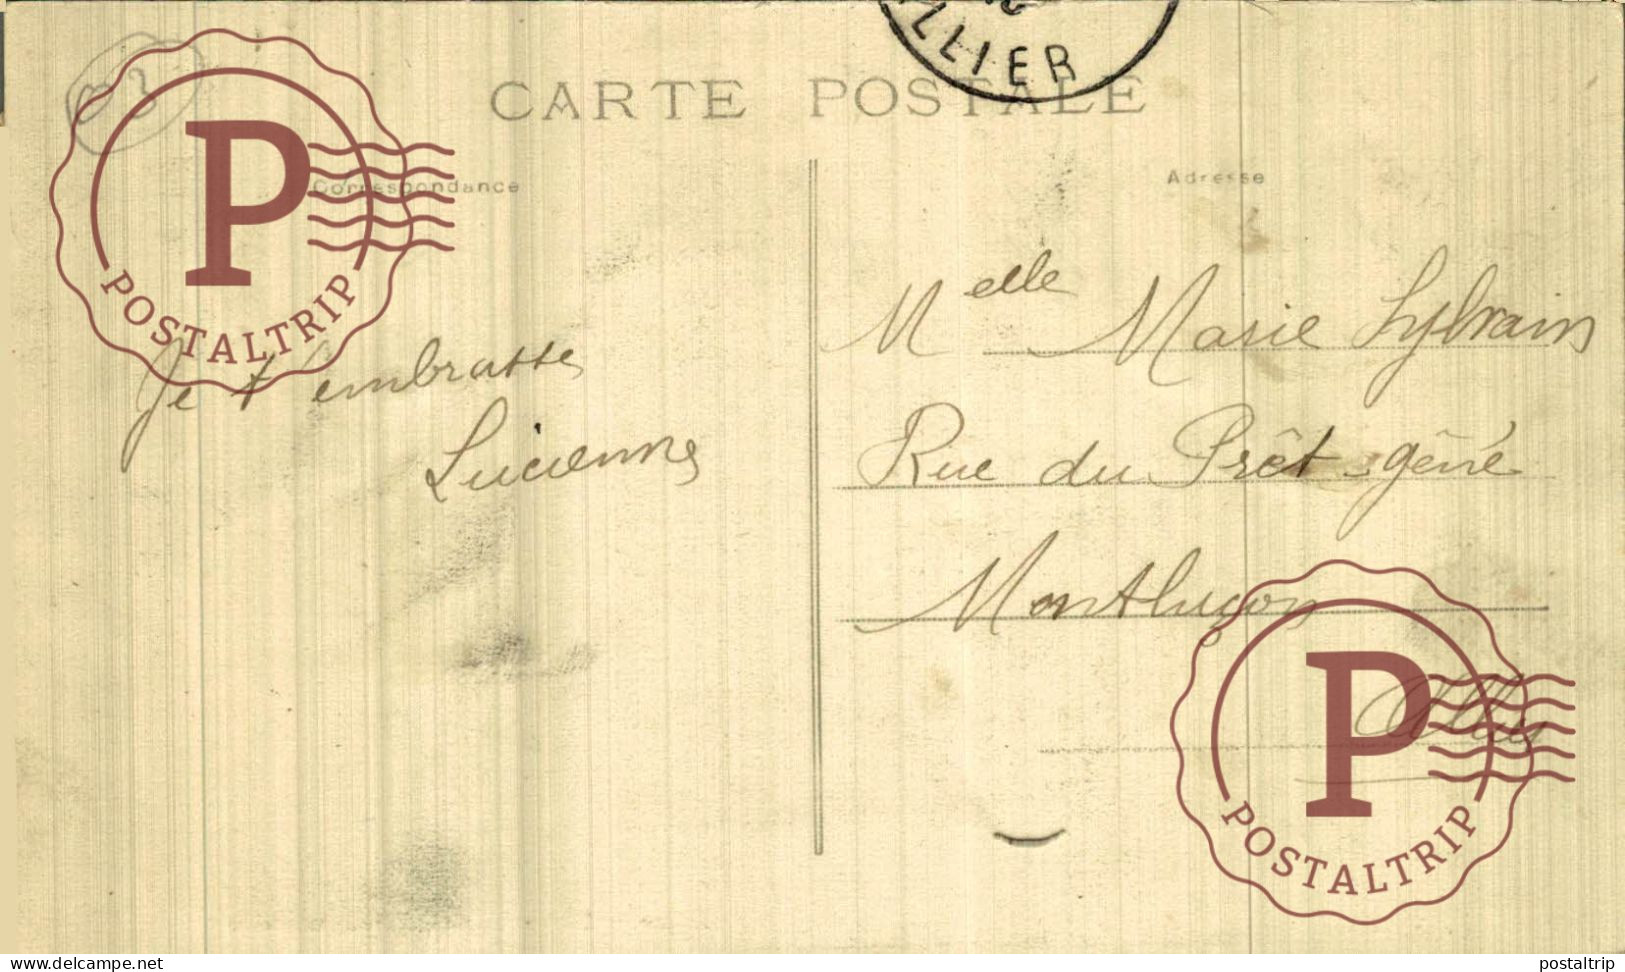 ALLIER
03
CARTE POSTALE
Correspondance
Adresse
P
POSTALTRIP
Je t'embrasse
Lucienne
Melle Marie Sylvain
Rue du Prêt-gêné
Montluçon
Allier
P
POSTALTRIP
delcampe.net
postaltrip